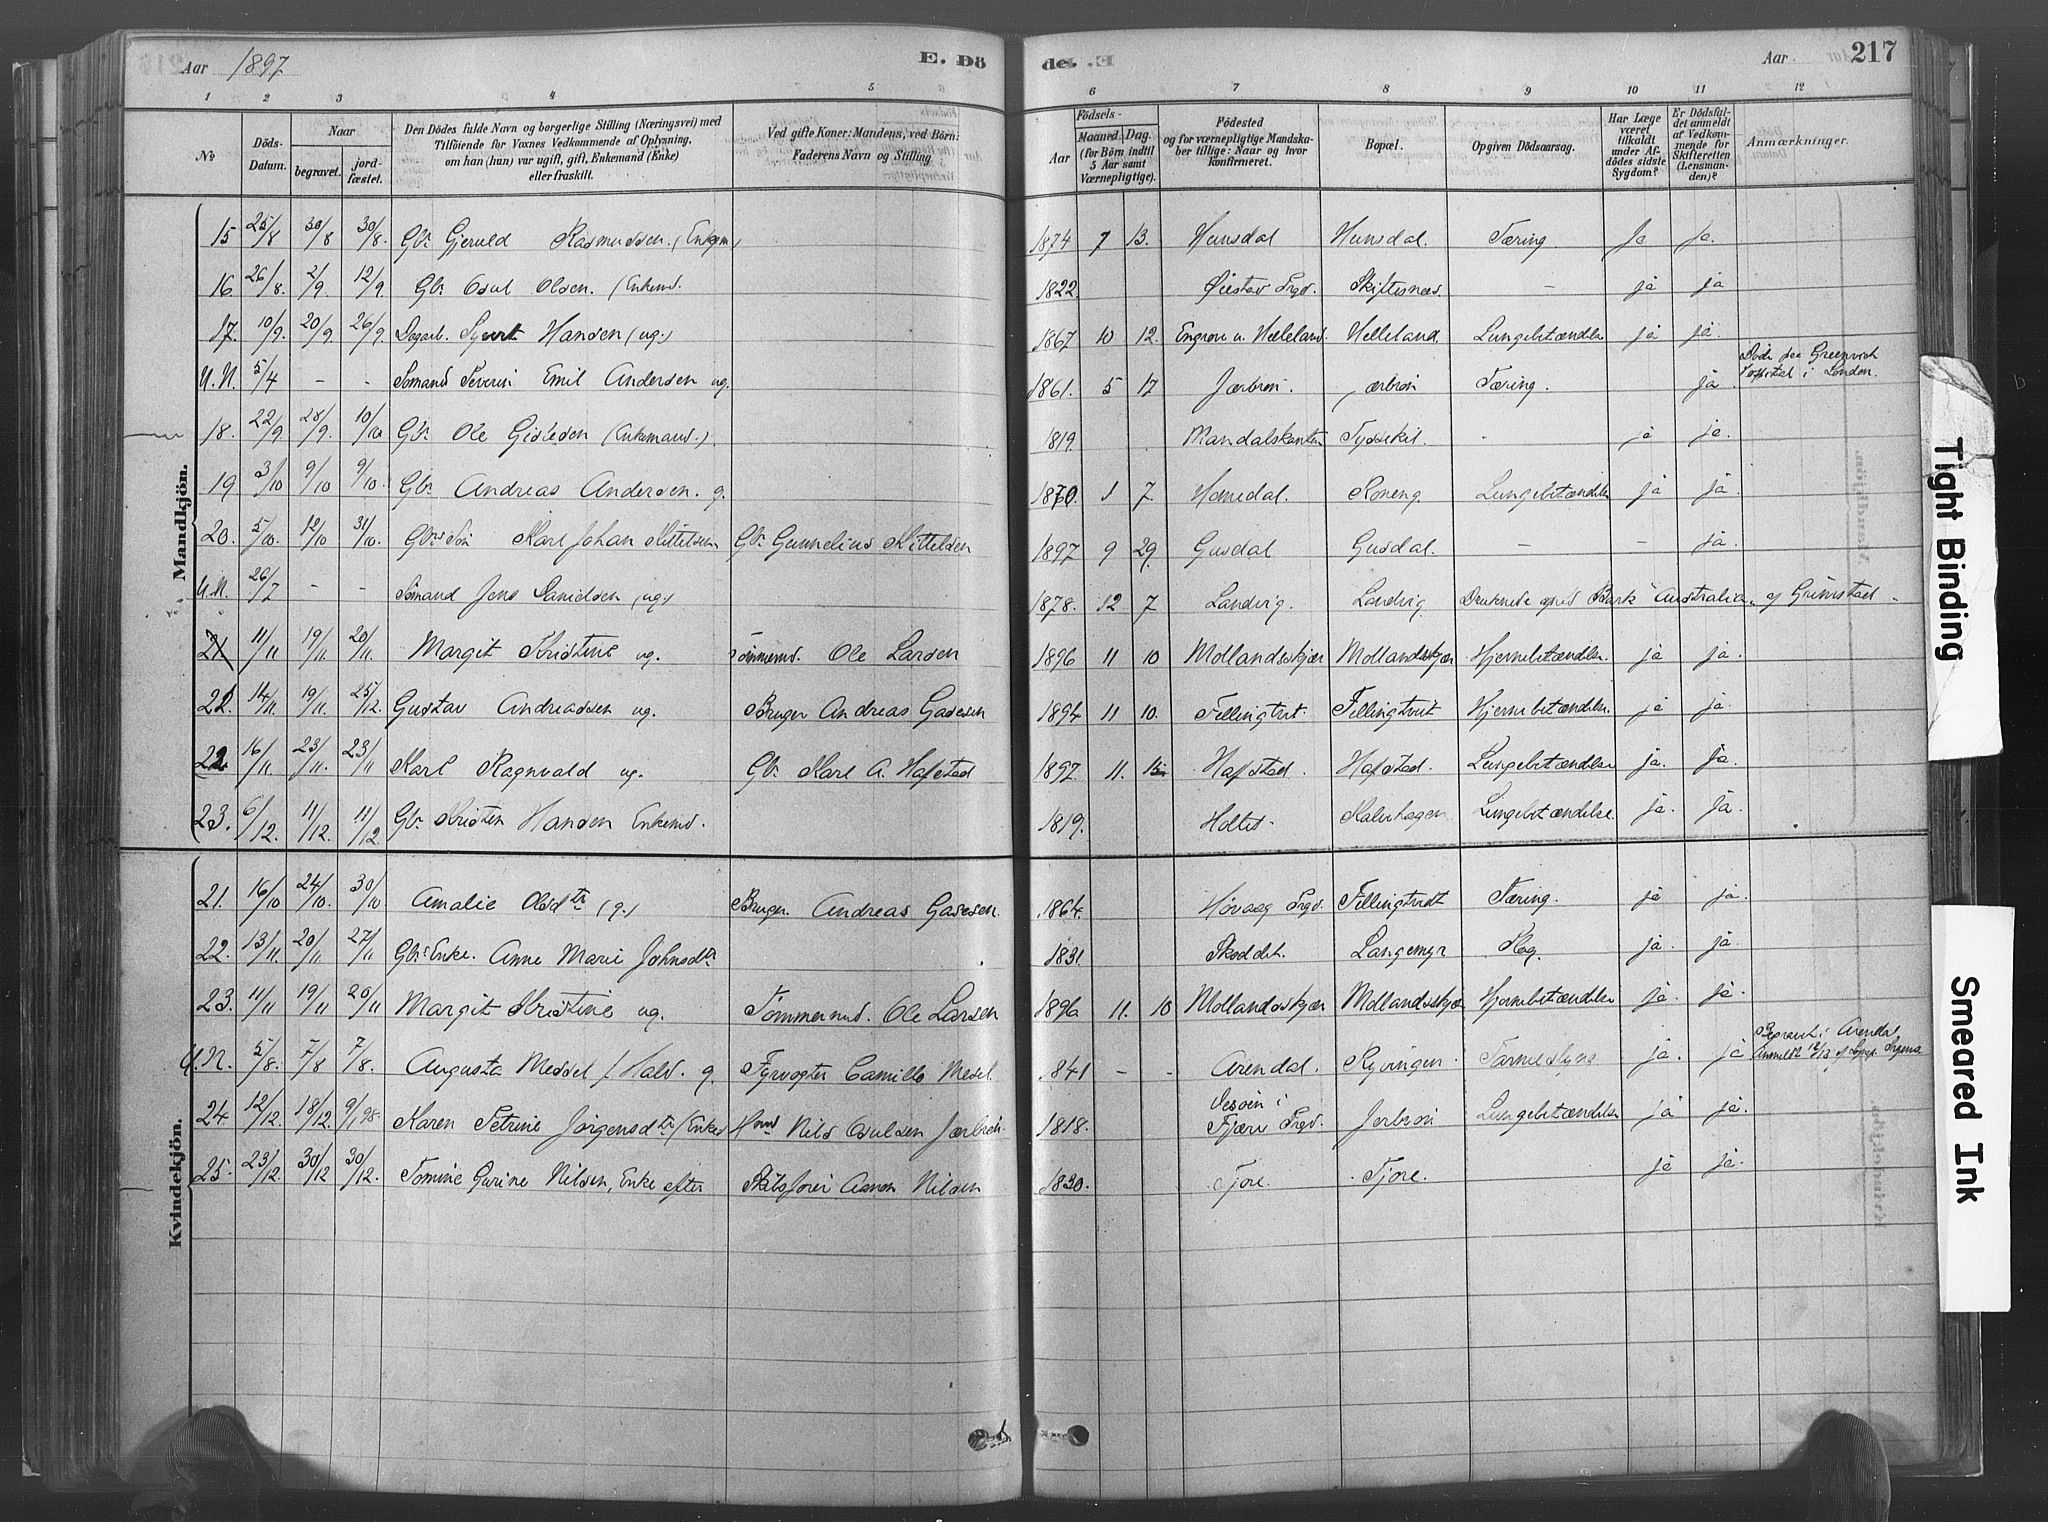 Aar 1897 E. Dö de. Aar 217
1 2 3 4 5 6 6 7 8 9 10 11 12
No
Döds-Datum.
Naar
begravet.
jord-fæstet.
Den Dödes fulde Navn og borgerlige Stilling (Næringsvei) med
Tilföiende for Voxnes Vedkommende af Oplysning,
om han (hun) var ugift, gift, Enkemand (Enke)
eller fraskilt.
Ved gifte Koner: Mandens, ved Börn:
Faderens Navn og Stilling.
Födsels-
Aar
Maaned. Dag.
(for Börn indtil
5 Aar samt
Værnepligtige).
Födested
og for værnepligtige Mandska-
ber tillige: Naar og hvor
konfirmeret.
Bopæl.
Opgiven Dödsaarsag.
Har Læge
været
tilkaldt
under Af-
dödes sidste
Sygdom?
Er Dödsfal-
det anmeldt
af Vedkom-
mende for
Skifteretten
(Lensman-
den)?
Anmærkninger.
Mandkjön.
15 25/8 30/8 30/8. Gbr Gjeruld Rasmussen. (Enkem) 1874 7 13. Hunsdal Hunsdal. Tæring. Ja Ja.
16. 26/8. 2/9. 12/9. Gbr Osul Olsen. (Enkemd. 1822. Øiestav Prgd. Skiftesnæs. - ja ja
17. 10/9. 20/9 26/9 Dagarb. Syvert Hansen (ug.) 1867 10 12. Engrove u. Helleland Helleland. Lungebetændelse ja ja.
U.N. 5/4 - - Sömand Severin Emil Andersen ug. 1861. 5 17 Jærbrön. Jærbrön Tæring. ja Döde paa Greenwich
Hospital i London.
18. 22/9 28/9. 10/10 Gbr Ole Gislesen (Enkemand.) 1819. Mandalskanten - ja ja.
19 3/10 9/10 9/10. Gbr Andreas Andersen. g. 1870. 1 7. Homedal. Roneng Lungebetændelse ja ja.
20. 5/10. 12/10 31/10. Gbrs Sön Karl Johan Kittelsen Gbr Gunnelius Kittelsen 1897 9 29. Gusdal Gusdal. - - ja.
U.N. 26/7 - - Sömand Jens Danielsen (ug.) 1878. 12 7 Landvig. Landvig Druknede med Bark "Australia" af Grimstad.
21. 11/11 19/11. 20/11. Margit Kristine ug. Tömmermd. Ole Larsen 1896 11 10 Mollandskjær Mollandskjær Hjernebetændelse. ja ja.
22. 14/11. 19/11. 25/12. Gustav Andreassen ug. Bruger Andreas Gasesen 1894 11 10. Fellingtvet. Fillingtveit Hjernebetændelse. ja ja.
22 16/11 23/11. 23/11 Karl Ragnvald ug. Gbr Karl A. Hafstad 1897 11. 15 Hafstad. Hafstad. Lungebetændelse ja. Ja.
23. 6/12. 11/12. 11/12 Gbr Kristen Hansen Enkemd. 1819. Holtet. Lungebetændelse. ja. Ja.
Kvindekjön.
21. 16/10 24/10. 30/10 Amalie Olsdtr (g.) Bruger. Andreas Gasesen. 1864. Høvaag Prgd. Fillingtvedt Tæring. ja ja.
22. 13/11. 20/11 27/11 Gbrs Enke. Anne Marie Johnsdtr 1831. Skoddet. Langemyr ja. ja.
23. 11/11 19/11 20/11 Margit Kristine ug. Tömmermd. Ole Larsen 1896 11. 10 Mollandskjær Mollandskjær Hjernebetændelse ja. ja.
U.N. 5/8. 7/8 7/8. Augusta Messel f. Hald. g. Fyrvogter Camillo Mesel. 1841 - - Arendal. Ryvingen. ja. ja Begravet i Arendal
24. 12/12. 18/12. 9/1 98. Karen Petrine Jörgensdtr (Enke) Hmd Nils Osulsen Jærbrön. 1818. Vesöen i
Fjære Prgd. Jerbrön Lungebetændelse ja ja.
25. 23/12. 30/12 30/12. Tomine Gurine Nilsen, Enke efter Nilsen 1830. Tjore. Tjore. ja ja.
Tight Binding
Smeared Ink